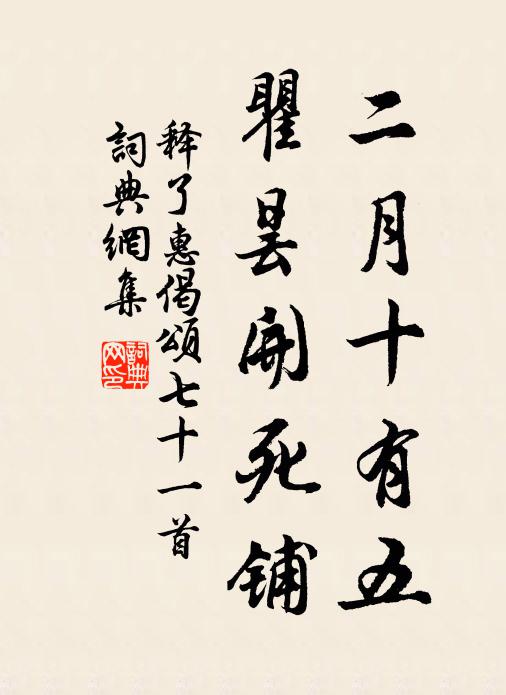 二月十有五
瞿昙開死铺
释了惠偈頌七十一首
詞典網集
詞典
网印